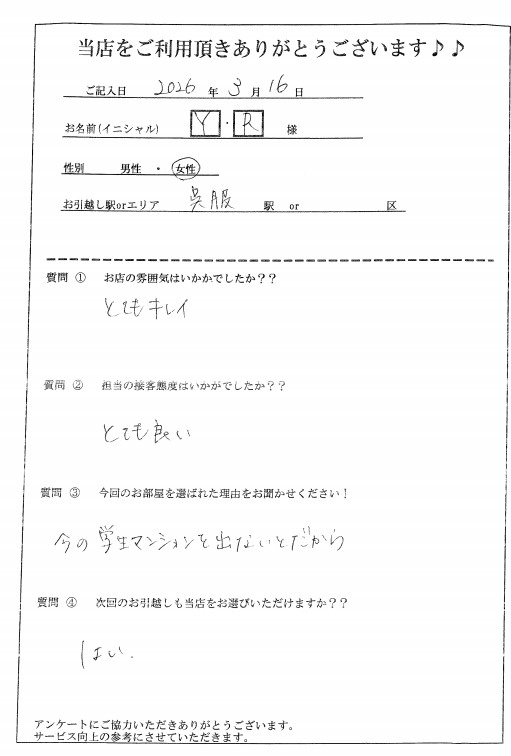 当店をご利用頂きありがとうございます♪♪
ご記入日 2026 年 3 月 16 日
お名前(イニシャル) Y・R 様
性別 男性 ・ 女性
お引越し駅orエリア 呉服 駅 or 区
質問 ① お店の雰囲気はいかかでしたか??
とてもキレイ
質問 ② 担当の接客態度はいかがでしたか??
とても良い
質問 ③ 今回のお部屋を選ばれた理由をお聞かせください!
今の学生マンションを出ないとだから
質問 ④ 次回のお引越しも当店をお選びいただけますか??
はい.
アンケートにご協力いただきありがとうございます。
サービス向上の参考にさせていただきます。